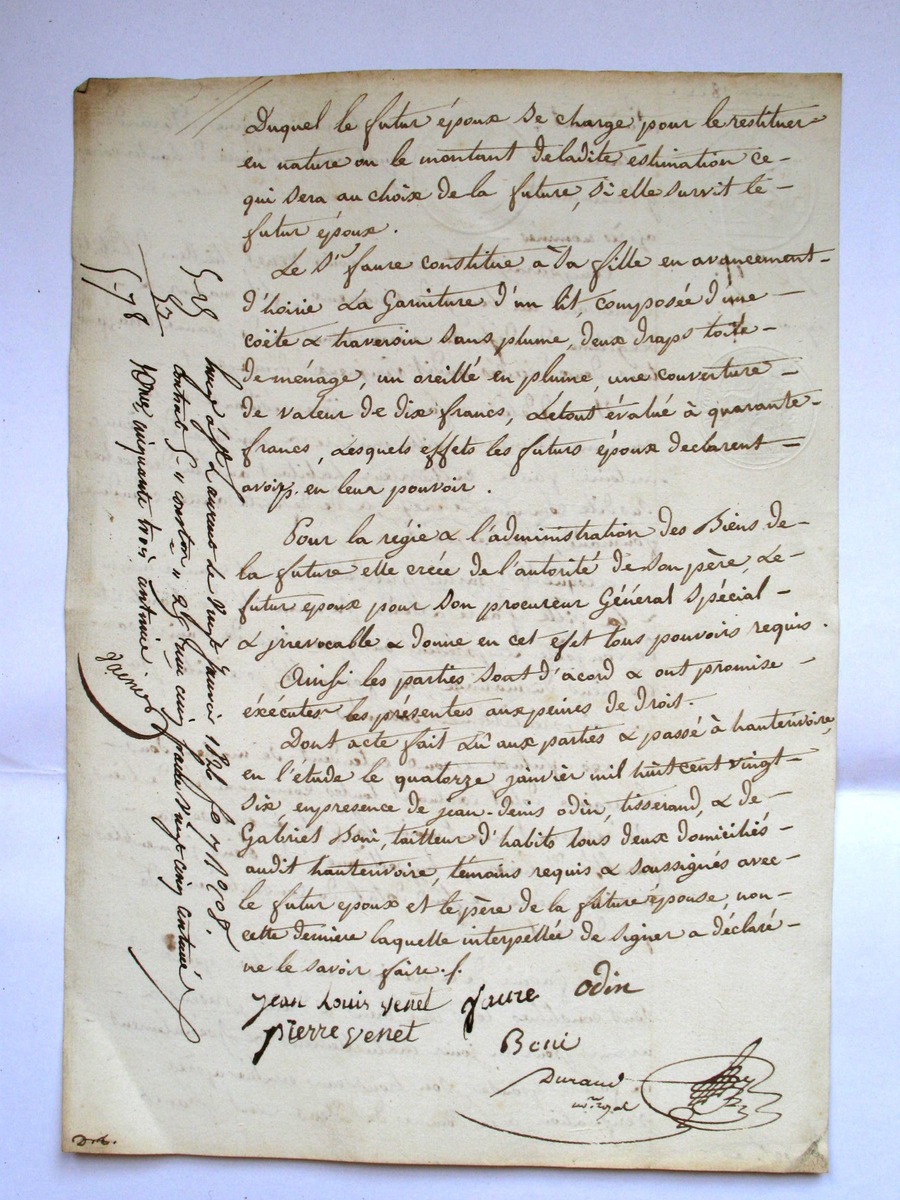 Duquel le futur époux se charge, pour le restituer
en nature ou le montant de ladite estimation ce
qui sera au choix de la future, si elle survit le
futur époux.
Le Sr. faure constitue à sa fille en avancement
d'hoirie La Garniture d'un lit, composée d'une
coëte & traversin sans plume, deux draps toile
de ménage, un oreillé en plume, une couverture
de valeur de dix francs, Letout évalué à quarante
francs, Lesquels effets les futurs époux declarent
avoir en leur pouvoir.
Pour la régie & l'administration des Biens de
la future elle créée de l'autorité de son père, Le
futur époux pour son procureur Général Spécial
& irrevocable & donne en cet effet tous pouvoirs requis.
Ainsi les parties sont d'acord & ont promise
éxécuter les présentes aux peines de Droit.
Dont acte fait Lû aux parties & passé à hauterivoire,
en l'étude le quatorze janvier mil huit cent vingt
six en presence de jean-Denis odin, tisserand, & de
Gabriel Boni, tailleur d'habits tous deux domiciliés
audit hauterivoire, témoins requis & soussignés avec
le futur epoux et le père de la future épouse, non
cette derniere laquelle interpellée de signer a déclaré
ne le savoir faire.
jean Louis venet faure odin
pierre venet
Boni
Durand
nore. royal
janvier 1826
contrat 5 " 25 cinq francs vingt cinq centimes
cinquante trois centimes
5-25
53
5-78